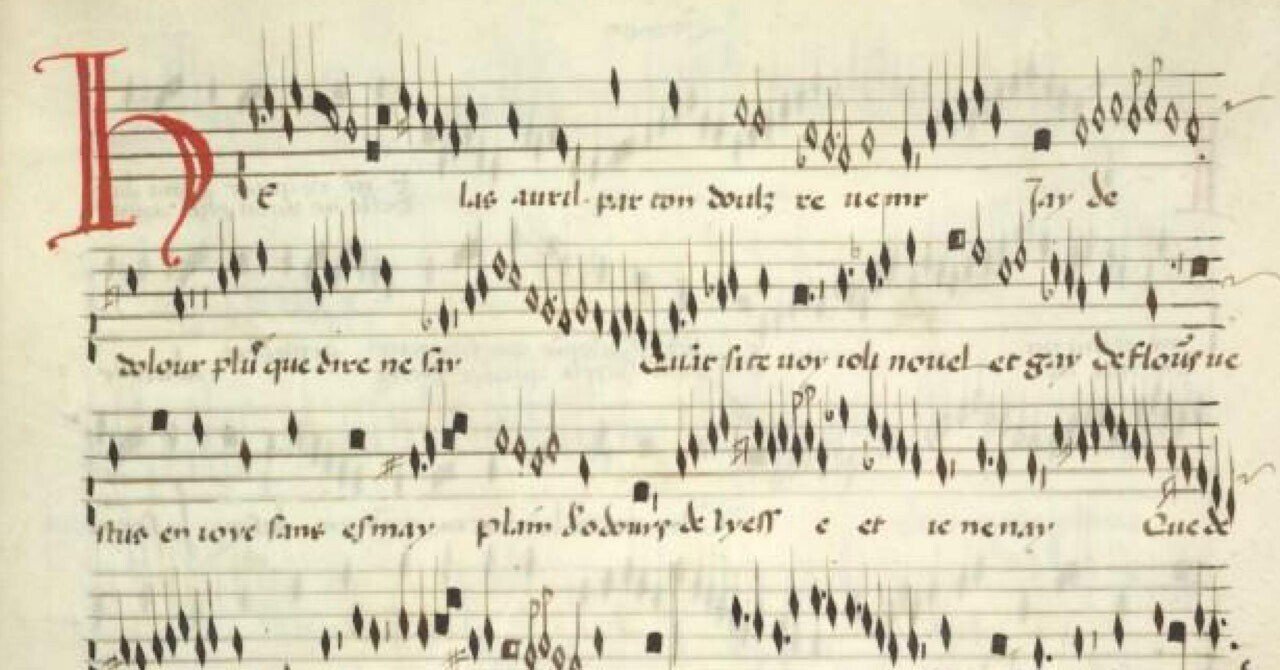 HE las auril par ton doulz re uenir Jay de
dolour plus que dire ne say Quāt ie te uoy ioli nouel et gay de flours ue
stus en ioye sans esmay plain dodours de lyess e et ie nenay Que de